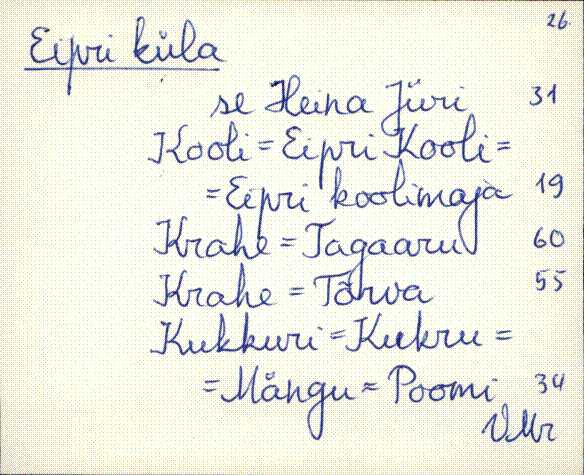 26.
Eipri küla
se Heina Jüri 31
Kooli = Eipri Kooli =
= Eipri koolimaja 19
Krahe = Tagaaru 60
Krahe = Tõrva 55
Kukkuri = Kukru =
= Mängu = Poomi 34
VMr